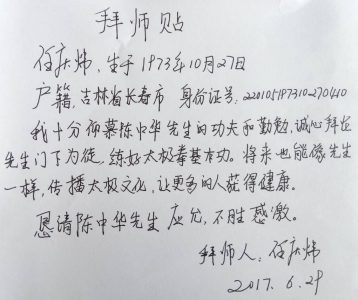 拜师贴
任庆炜，生于1973年10月27日
户籍，吉林省长春市 身份证号，220105197310270410
我十分仰慕陈中华先生的功夫和勤勉，诚心拜在
先生门下为徒，练好太极拳基本功。将来也能像先生
一样，传播太极文化，让更多的人获得健康。
恳请陈中华先生 应允，不胜感激。
拜师人，任庆炜
2017.6.29